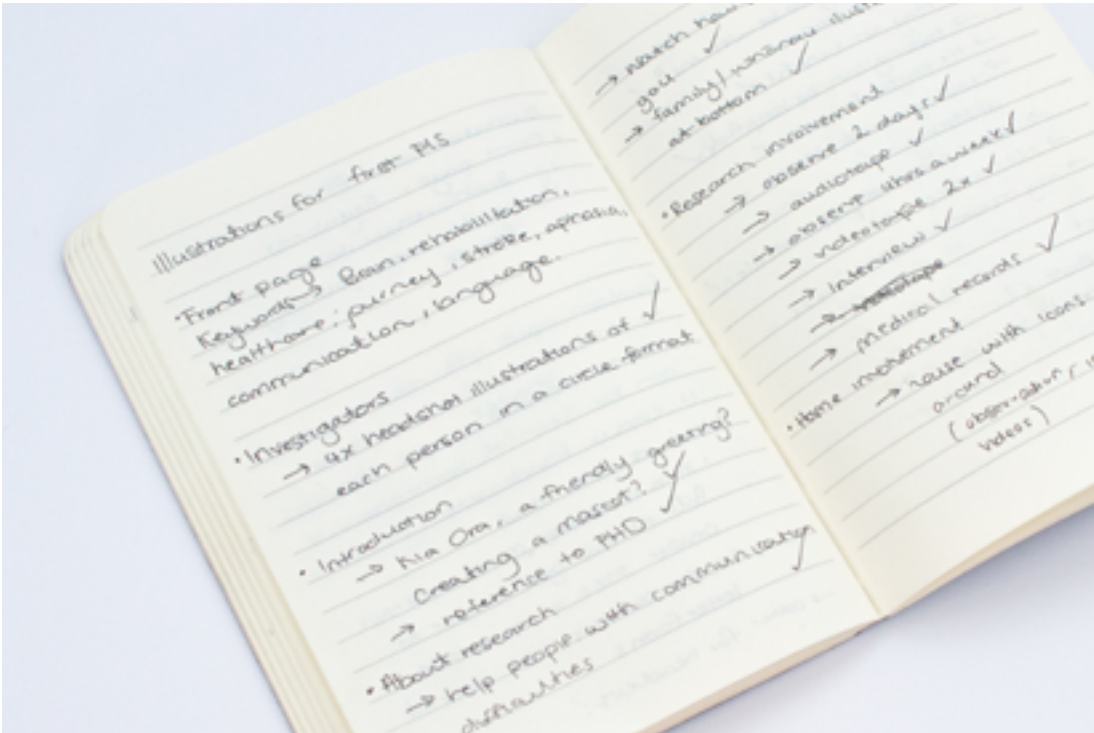 Illustrations for first PIS
• Front page
Keywords → Brain, rehabilitation,
healthcare, journey, stroke, aphasia,
communication, language.
• Investigators
→ 4x headshot illustrations of ✓
each person in a circle format
• Introduction
→ Kia Ora, a friendly greeting?
Creating a mascot? ✓
→ reference to PHD ✓
• About research
→ help people with communication
difficulties ✓
→ watch how
you ✓
→ family/whanau
at bottom ✓
• Research involvement
→ observe 2 days ✓
→ audiotape ✓
→ observe a week ✓
→ videotape 2x ✓
→ Interview ✓
→ medical records ✓
• Home involvement
→ with icons
around
(observation,
videos)